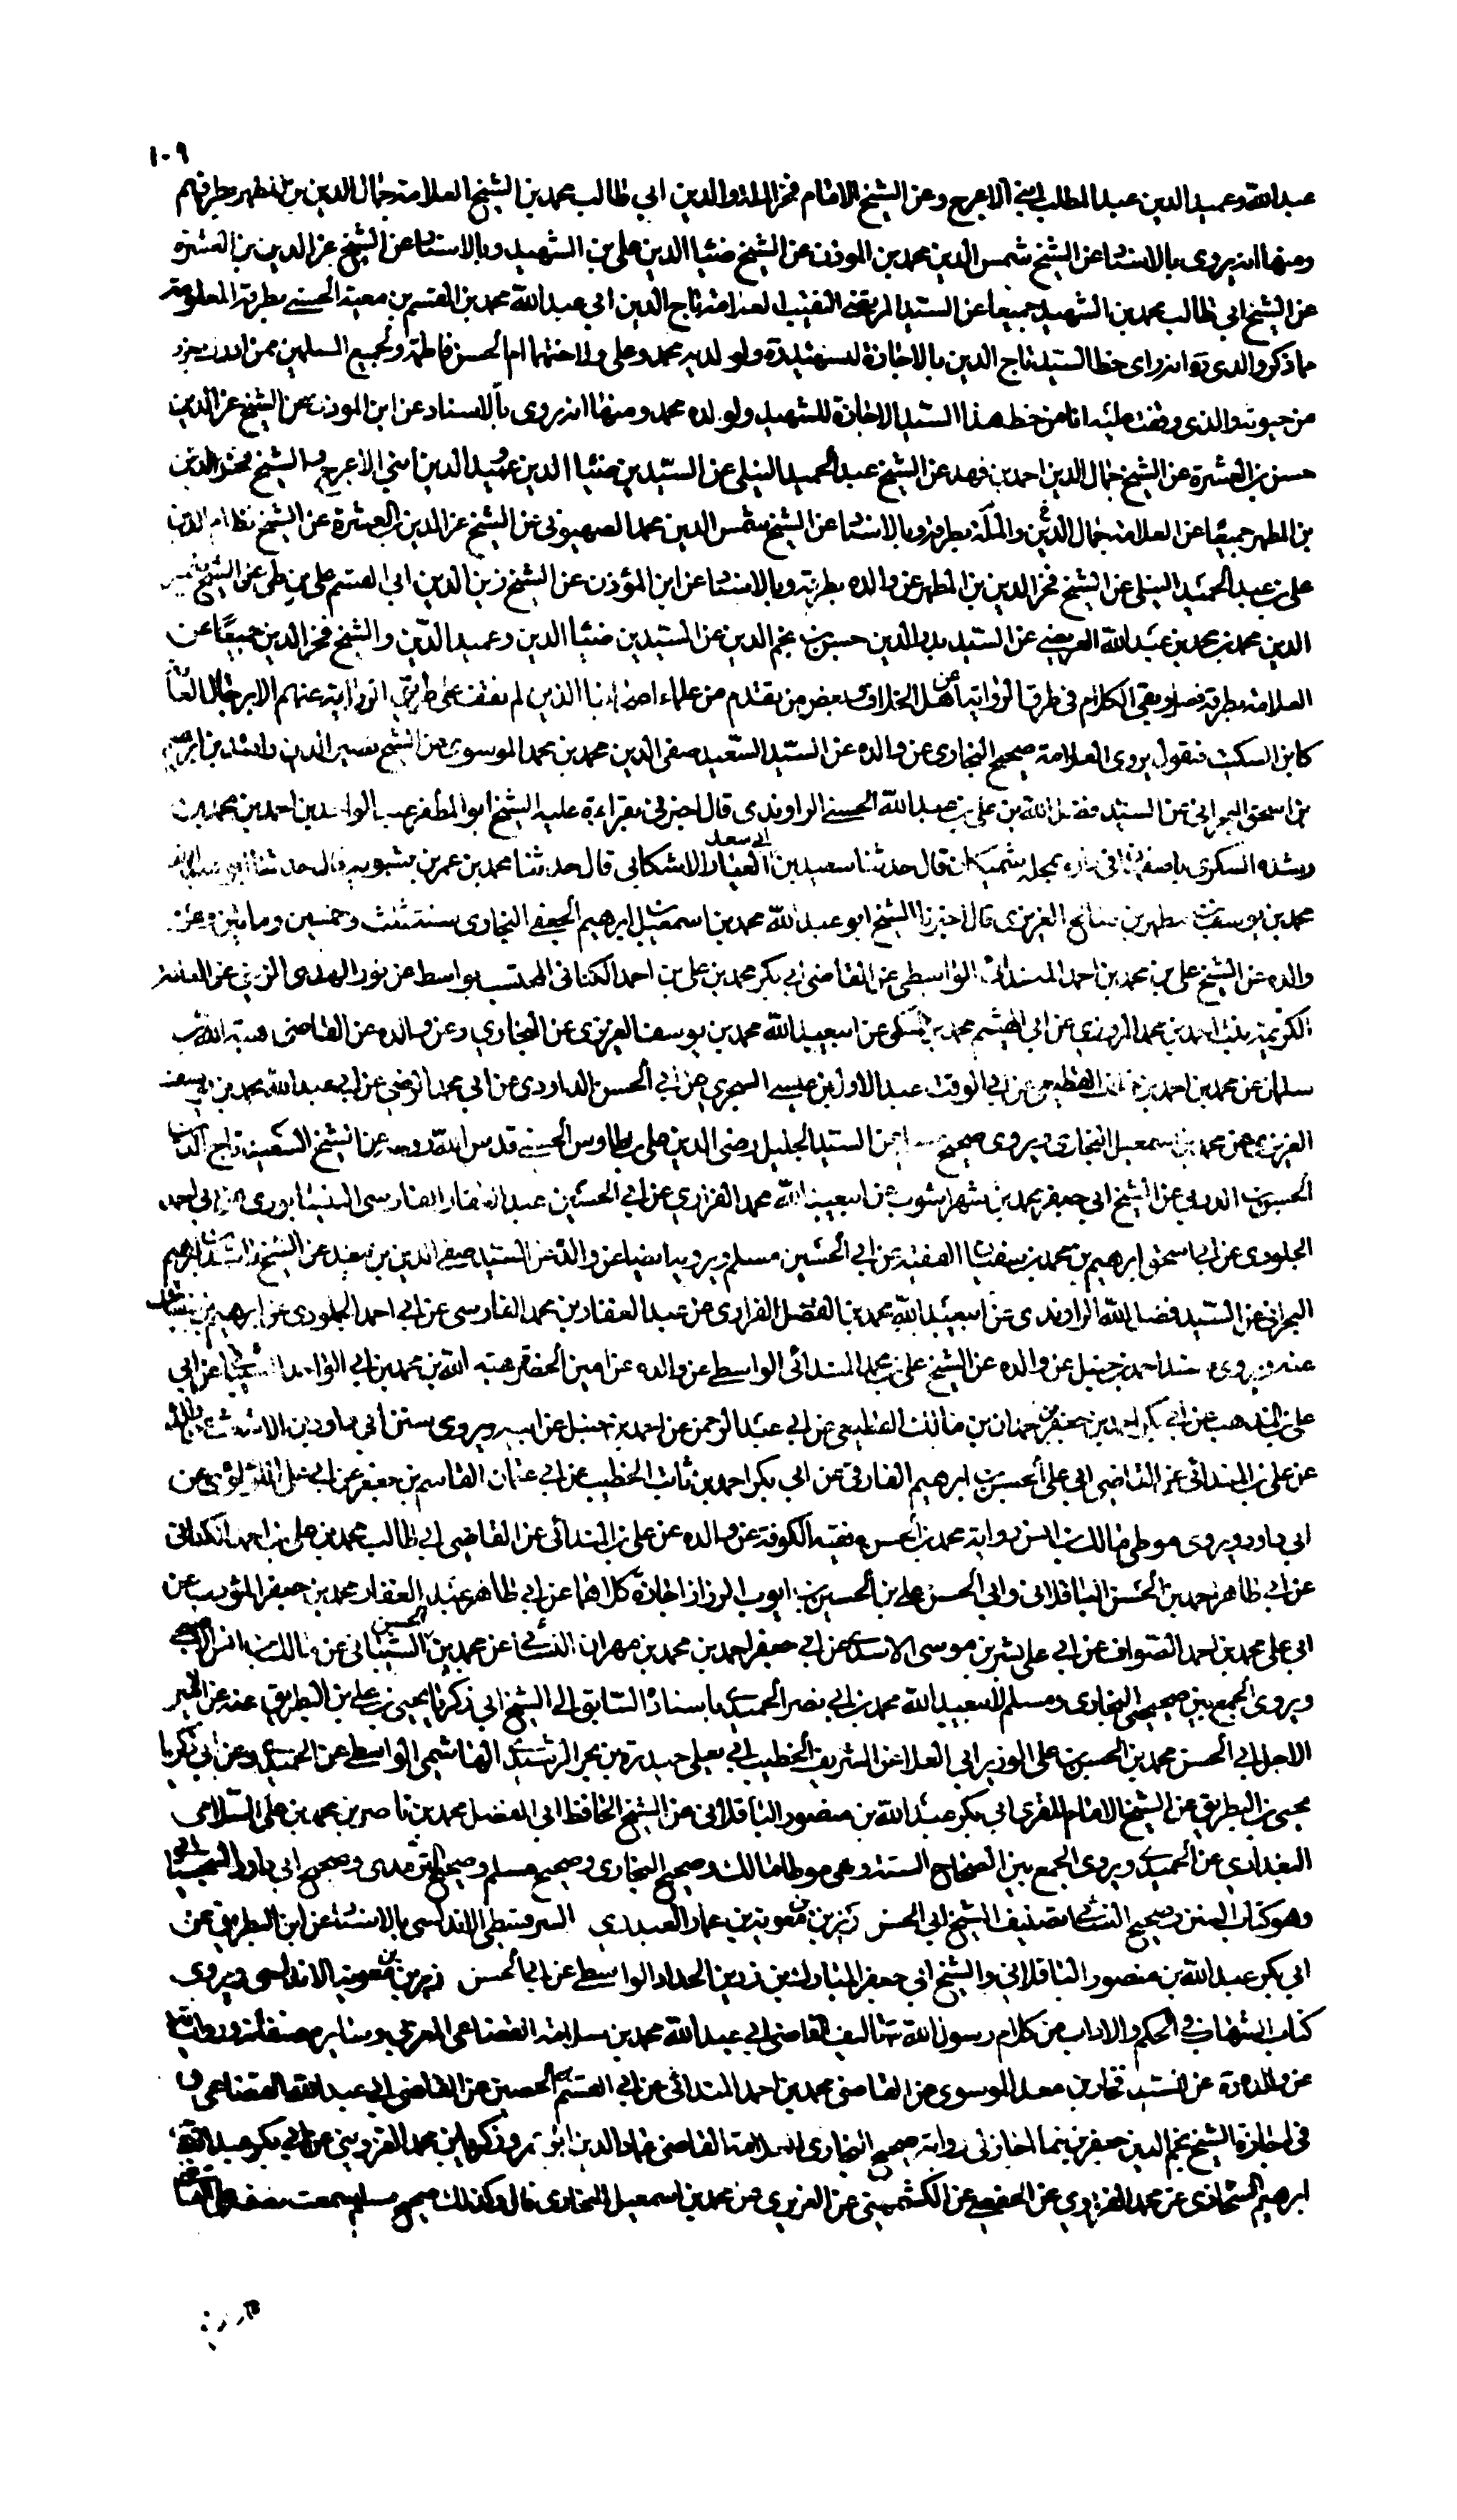 ١٠٩
عبدالله وعميد الدين عبد المطلب ابني الاعرج وعن الشيخ الامام فخر الملة والدين ابي طالب محمد بن الشيخ العلامة جمال الدين بن المطهر بطرقهم
ومنها انه يروى بالاسناد عن الشيخ شمس الدين محمد بن الموذن عن الشيخ ضياء الدين على بن الشهيد وبالاسناد عن الشيخ عز الدين بن العشرة
عن الشيخ ابي طالب محمد بن الشهيد جميعا عن السيد المرتضى النقيب العلامة تاج الدين ابي عبدالله محمد بن القسم بن معية الحسنى بطرقه المعلومة
مما ذكر والدى انه راى خط السيد تاج الدين بالاجازة للشهيد ولولديه محمد وعلى ولاختهما ام الحسن فاطمة ولجميع المسلمين ممن ادرك جزء
من حيوته والذى وقفت عليه انا من خط هذا السيد الاجازة للشهيد ولولده محمد ومنها انه يروى بالاسناد عن ابن الموذن عن الشيخ عز الدين
حسن بن العشرة عن الشيخ جمال الدين احمد بن فهد عن الشيخ عبد الحميد النيلى عن السيدين ضياء الدين وعميد الدين ابني الاعرج والشيخ فخر الدين
بن المطهر جميعا عن العلامة جمال الدين والملة بطرقه وبالاسناد عن الشيخ شمس الدين محمد الصهيونى عن الشيخ عز الدين بن العشرة عن الشيخ نظام الدين
على بن عبد الحميد النيلى عن الشيخ فخر الدين بن المطهر عن والده بطرقه وبالاسناد عن ابن المؤذن عن الشيخ زين الدين ابي القسم على بن طى عن الشيخ شمس
الدين محمد بن محمد بن عبدالله العريضى عن السيد بدر الدين حسن بن نجم الدين عن السيدين ضياء الدين وعميد الدين والشيخ فخر الدين جميعا عن
العلامة بطرقه فصل وبقى الكلام فى طرق الرواية عن اهل الخلاف وبعض من تقدم من علماء اصحابنا الذين لم نقف على طريق الرواية عنهم الا برجال العامة
كابن السكيت فنقول يروى العلامة صحيح البخارى عن والده عن السيد السعيد صفى الدين محمد بن محمد الموسوى عن الشيخ نصير الدين راشد بن ابرهيم
بن اسحق البحرانى عن السيد فضل الله بن على بن عبدالله الحسنى الراوندى قال اخبرنى بقراءة عليه الشيخ ابو المظفر عبد الواحد بن احمد بن محمد بن
السكرى باصفهان فى داره قال حدثنا سعيد بن ابي سعد العيار الاشكابى قال حدثنا محمد بن عمر بن شبويه قال حدثنا ابو عبدالله
محمد بن يوسف بن مطهر بن صالح الفربرى قال اخبرنا الشيخ ابو عبدالله محمد بن اسمعيل بن ابرهيم الجعفى البخارى سنة ثلث وخمسين ومايتين وعن
والده عن الشيخ على بن محمد بن احمد المندائى الواسطى عن القاضى ابي بكر محمد بن على بن احمد الكتانى المحتسب بواسط عن نور الهدى الزينبى عن العامة
الكريمة بنت احمد بن محمد المروزى عن ابي الهيثم محمد بن مكى عن ابيعبدالله محمد بن يوسف الفربرى عن البخاري وعن والده عن القاضى هبة الله بن
سلمان عن محمد بن احمد بن القطيعى عن ابي الوقت عبد الاول بن عيسى السجزى عن ابي الحسن الداودى عن ابي محمد السرخسى عن ابي عبدالله محمد بن يوسف
الفربرى عن محمد بن اسمعيل البخارى ويروى صحيح مسلم عن السيد الجليل رضى الدين على بن طاوس الحسنى قدس الله روحه عن الشيخ السعيد تاج الدين
الحسن بن الدربى عن الشيخ ابي جعفر محمد بن شهراشوب عن ابيعبدالله محمد الفراوى عن ابي الحسين عبد الغفار الفارسى النيشابورى عن ابي احمد
الجلودى عن ابي اسحق ابرهيم بن محمد بن سفيان الفقيه عن ابي الحسين مسلم ويرويه ايضا عن والده عن السيد صفى الدين بن معد عن الشيخ راشد بن ابرهيم
البحرانى عن السيد فضل الله الراوندى عن ابيعبدالله محمد بن الفضل الفراوى عن عبد الغفار بن محمد الفارسى عن ابي احمد الجلودى عن ابرهيم بن سفيان
عنه ويروى مسند احمد بن حنبل عن والده عن الشيخ على بن محمد المندائى الواسطى عن والده عن امين الحضرة هبة الله بن محمد بن ابي الواحد الشيبانى عن ابي
على بن المذهب عن ابي بكر احمد بن جعفر بن حمدان بن مالك القطيعى عن ابي عبد الرحمن عن احمد بن حنبل عن ابيه ويروى سنن ابي داود بن الاشعث عن والده
عن على بن المندائى عن القاضى ابي على الحسن بن ابرهيم الفارقى عن ابي بكر احمد بن ثابت الخطيب عن ابي عثمان القاسم بن جعفر عن ابي على اللؤلؤى عن
ابي داود ويروى موطى مالك بن انس رواية محمد بن الحسن فقيه الكوفة عن والده عن على بن المندائى عن القاضى ابي طالب محمد بن على بن احمد الكتانى
عن ابي طاهر احمد بن الحسن الباقلانى وابي الحسن على بن الحسين بن ايوب البزاز اجازة كلاهما عن ابي طاهر عبد الغفار محمد بن جعفر المؤدب عن
ابي على محمد بن احمد الصواف عن ابي على بشر بن موسى الاسدى عن ابي جعفر احمد بن محمد بن مهران النسائى عن محمد بن الحسن الشيبانى عن مالك بن انس الاصبحى
ويروى الجمع بين صحيحى البخارى ومسلم لابيعبدالله محمد بن ابي نصر الحميدى باسناده السابق الى الشيخ ابي زكريا يحيى بن على بن البطريق عنه عن الامير
الاجل ابي الحسن محمد بن الحسن بن على الوزير ابي العلا عن الشريف الخطيب ابي يعلى حيدرة بن بحر الرشيدى الهاشمى الواسطى عن الحميدى وعن ابي زكريا
يحيى بن البطريق عن الشيخ الامام المقرى ابي بكر عبدالله بن منصور الباقلانى عن الشيخ الحافظ ابي الفضل محمد بن ناصر بن محمد بن على السلامى
البغدادى عن الحميدى ويروى الجمع بين الصحاح الستة وهى موطا مالك وصحيح البخارى وصحيح مسلم وصحيح الترمذى وصحيح ابي داود السجستانى
وهو كتاب السنن وصحيح النسائى تصنيف الشيخ ابي الحسن رزين بن معوية بن عمار العبدرى السرقسطى الاندلسى بالاسناد عن ابن البطريق عن
ابي بكر عبدالله بن منصور الباقلانى والشيخ ابي جعفر المبارك بن زرين الحداد الواسطى عن ابي الحسن رزين بن معوية الاندلسى ويروى
كتاب الشهاب فى الحكم والاداب من كلام رسول الله ص تاليف القاضى ابي عبدالله محمد بن سلامة القضاعى المغربى وساير مصنفاته ورواياته
عن والده عن السيد فخار بن معد الموسوى عن القاضى محمد بن احمد المندائى عن ابي القسم بن الحصين عن القاضى ابي عبدالله القضاعى و
فى اجازة الشيخ نجم الدين جعفر بن نما اجاز لى رواية صحيح البخارى العلامة القاضى عماد الدين ابو زكريا بن محمد القزوينى عن ابي بكر عبدالله بن
ابرهيم الشحاذى عن محمد الفراوى عن الحفصى عن الكشميهنى عن الفربرى عن محمد بن اسمعيل البخارى قال وكذلك صحيح مسلم سمعت بعضه على القاضى